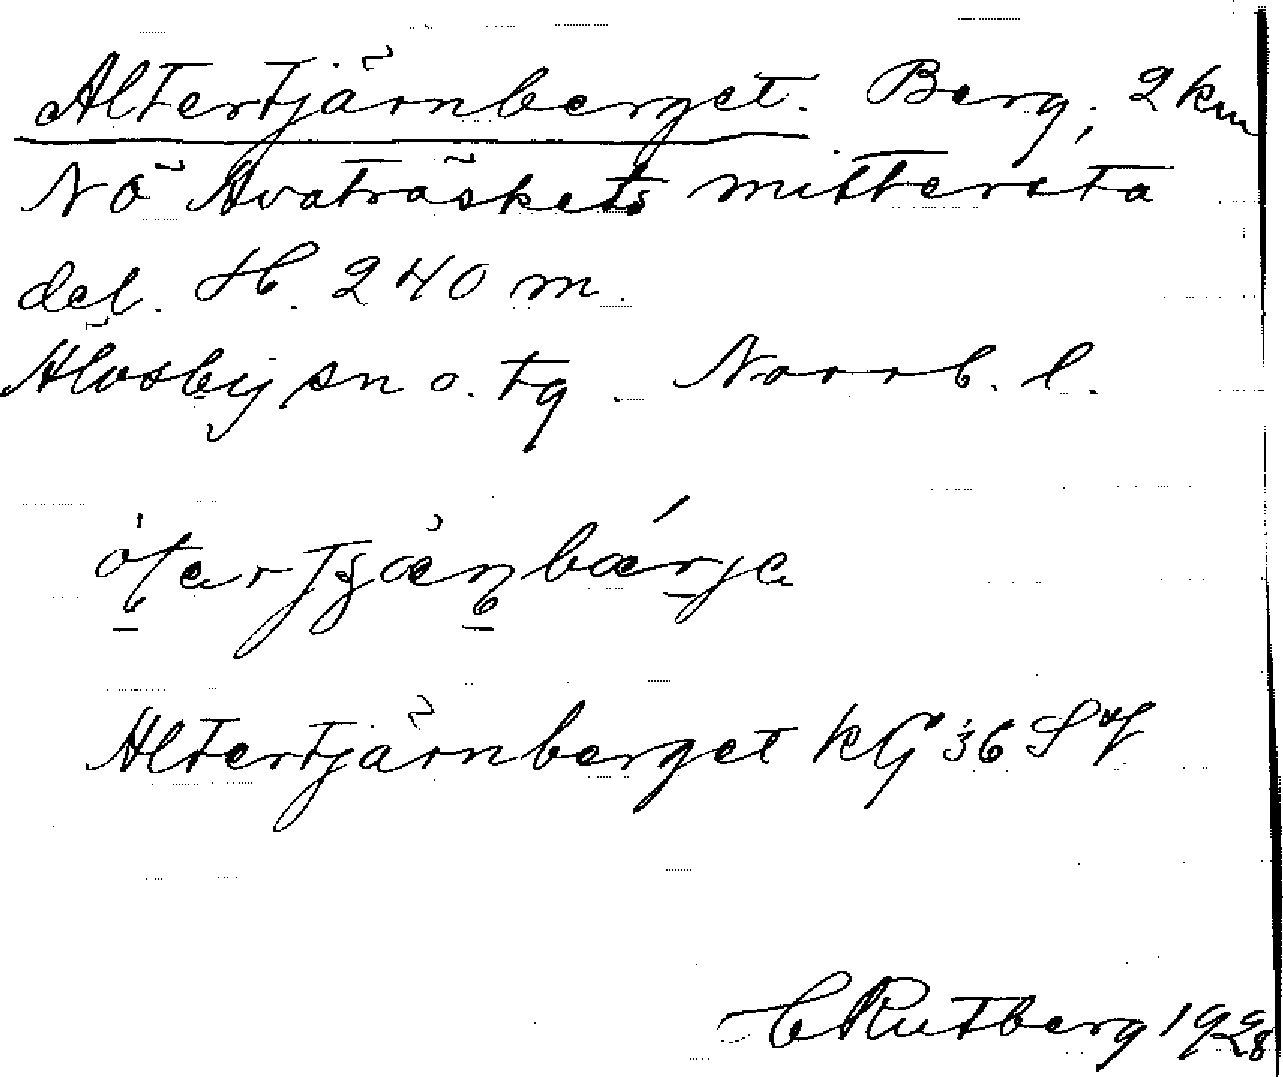 Altertjärnberget. Berg, 2 km
NÖ Avaträskets mittersta
del. H. 240 m.
Älvsby sn o. tg. Norrb. l.
Altertjärnberget KG 36 SV
H Rutberg 1928